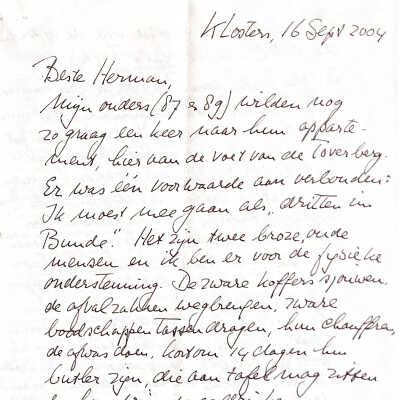 Klosters, 16 Sept 2004
Beste Herman,
Mijn ouders (87 & 89) wilden nog
zo graag een keer naar hun apparte-
ment, hier aan de voet van de Toverberg.
Er was één voorwaarde aan verbonden:
Ik moest mee gaan als „dritten im
Bunde". Het zijn twee broze, oude
mensen en ik ben er voor de fysieke
ondersteuning. De zware koffers sjouwen,
de afvalzakken wegbrengen, zware
boodschappentassen dragen, hun chauffeur,
de afwas doen, kortom 14 dagen hun
butler zijn, die aan tafel mag zitten